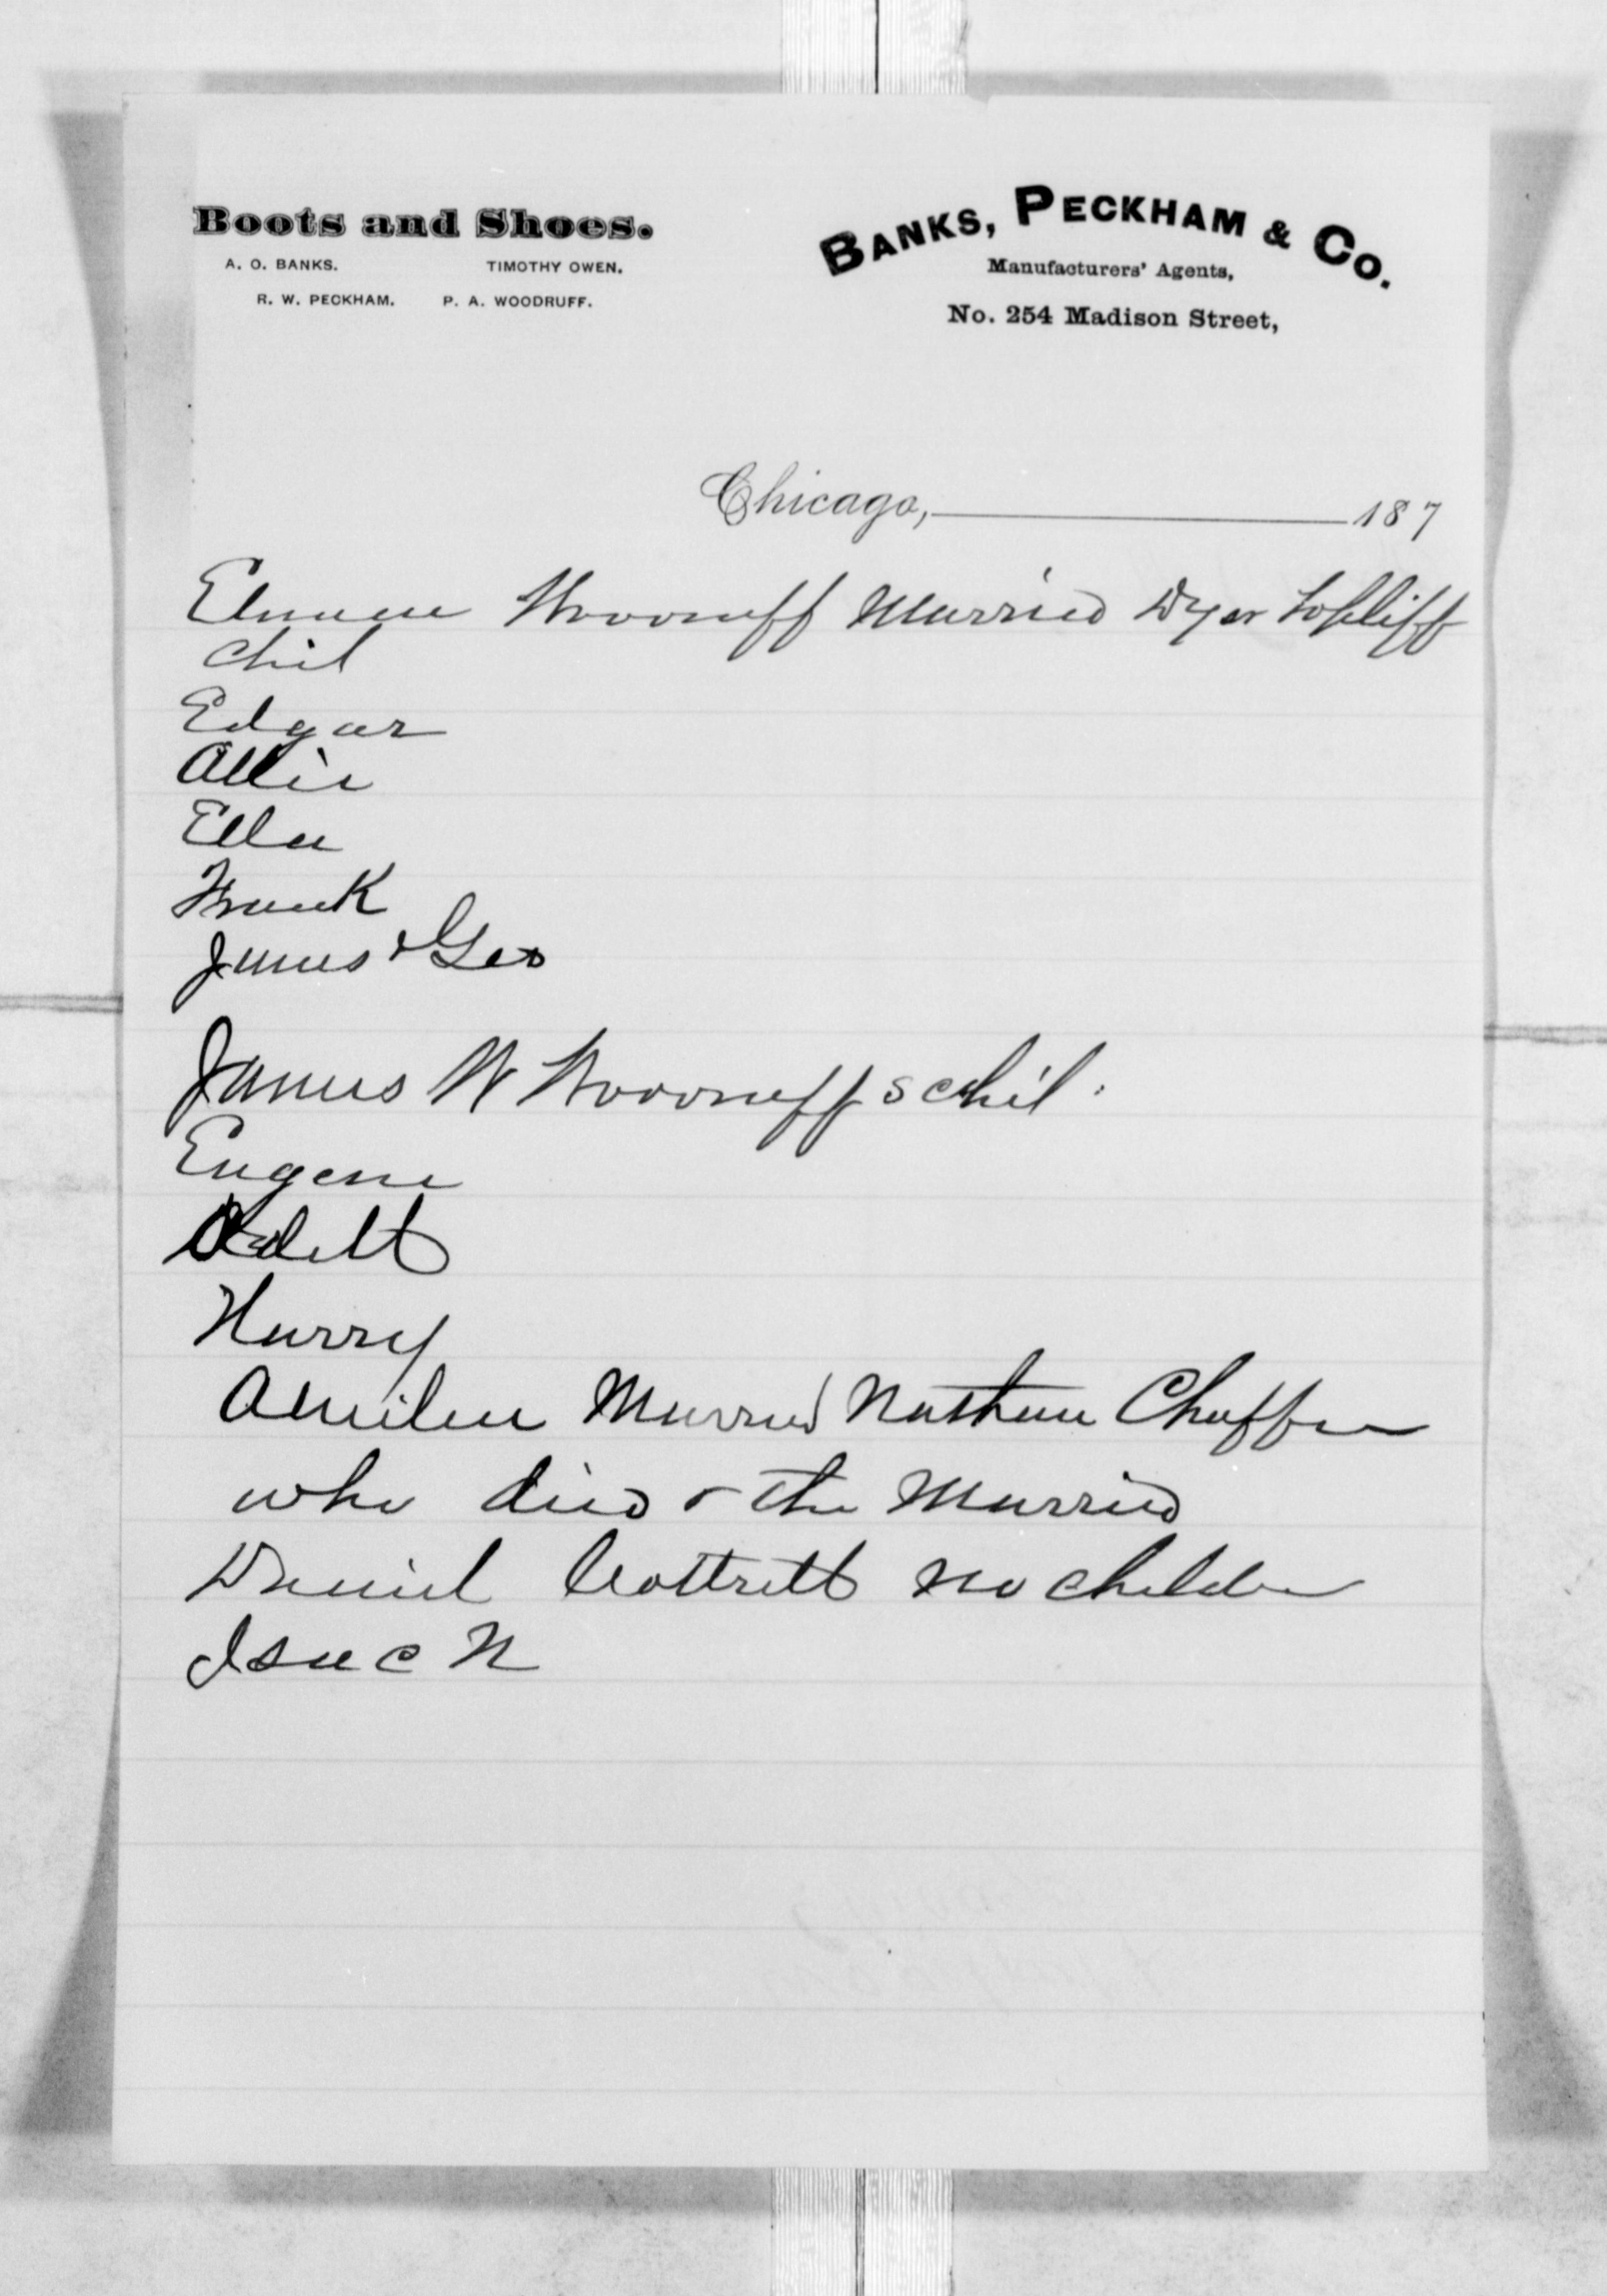 Boots and Shoes.
A. O. BANKS. TIMOTHY OWEN.
R. W. PECKHAM. P. A. WOODRUFF.
BANKS, PECKHAM & Co.
Manufacturers' Agents,
No. 254 Madison Street,
Chicago, 187
Woodruff Married Dyer Topliff
Chil
Edgar
Allie
Ella
Frank
James & Geo
James W Woodruffs chil.
Eugene
Harry
Married Nathan Chaffee
who died & the Married
Daniel Cottrell no children
Isaac N